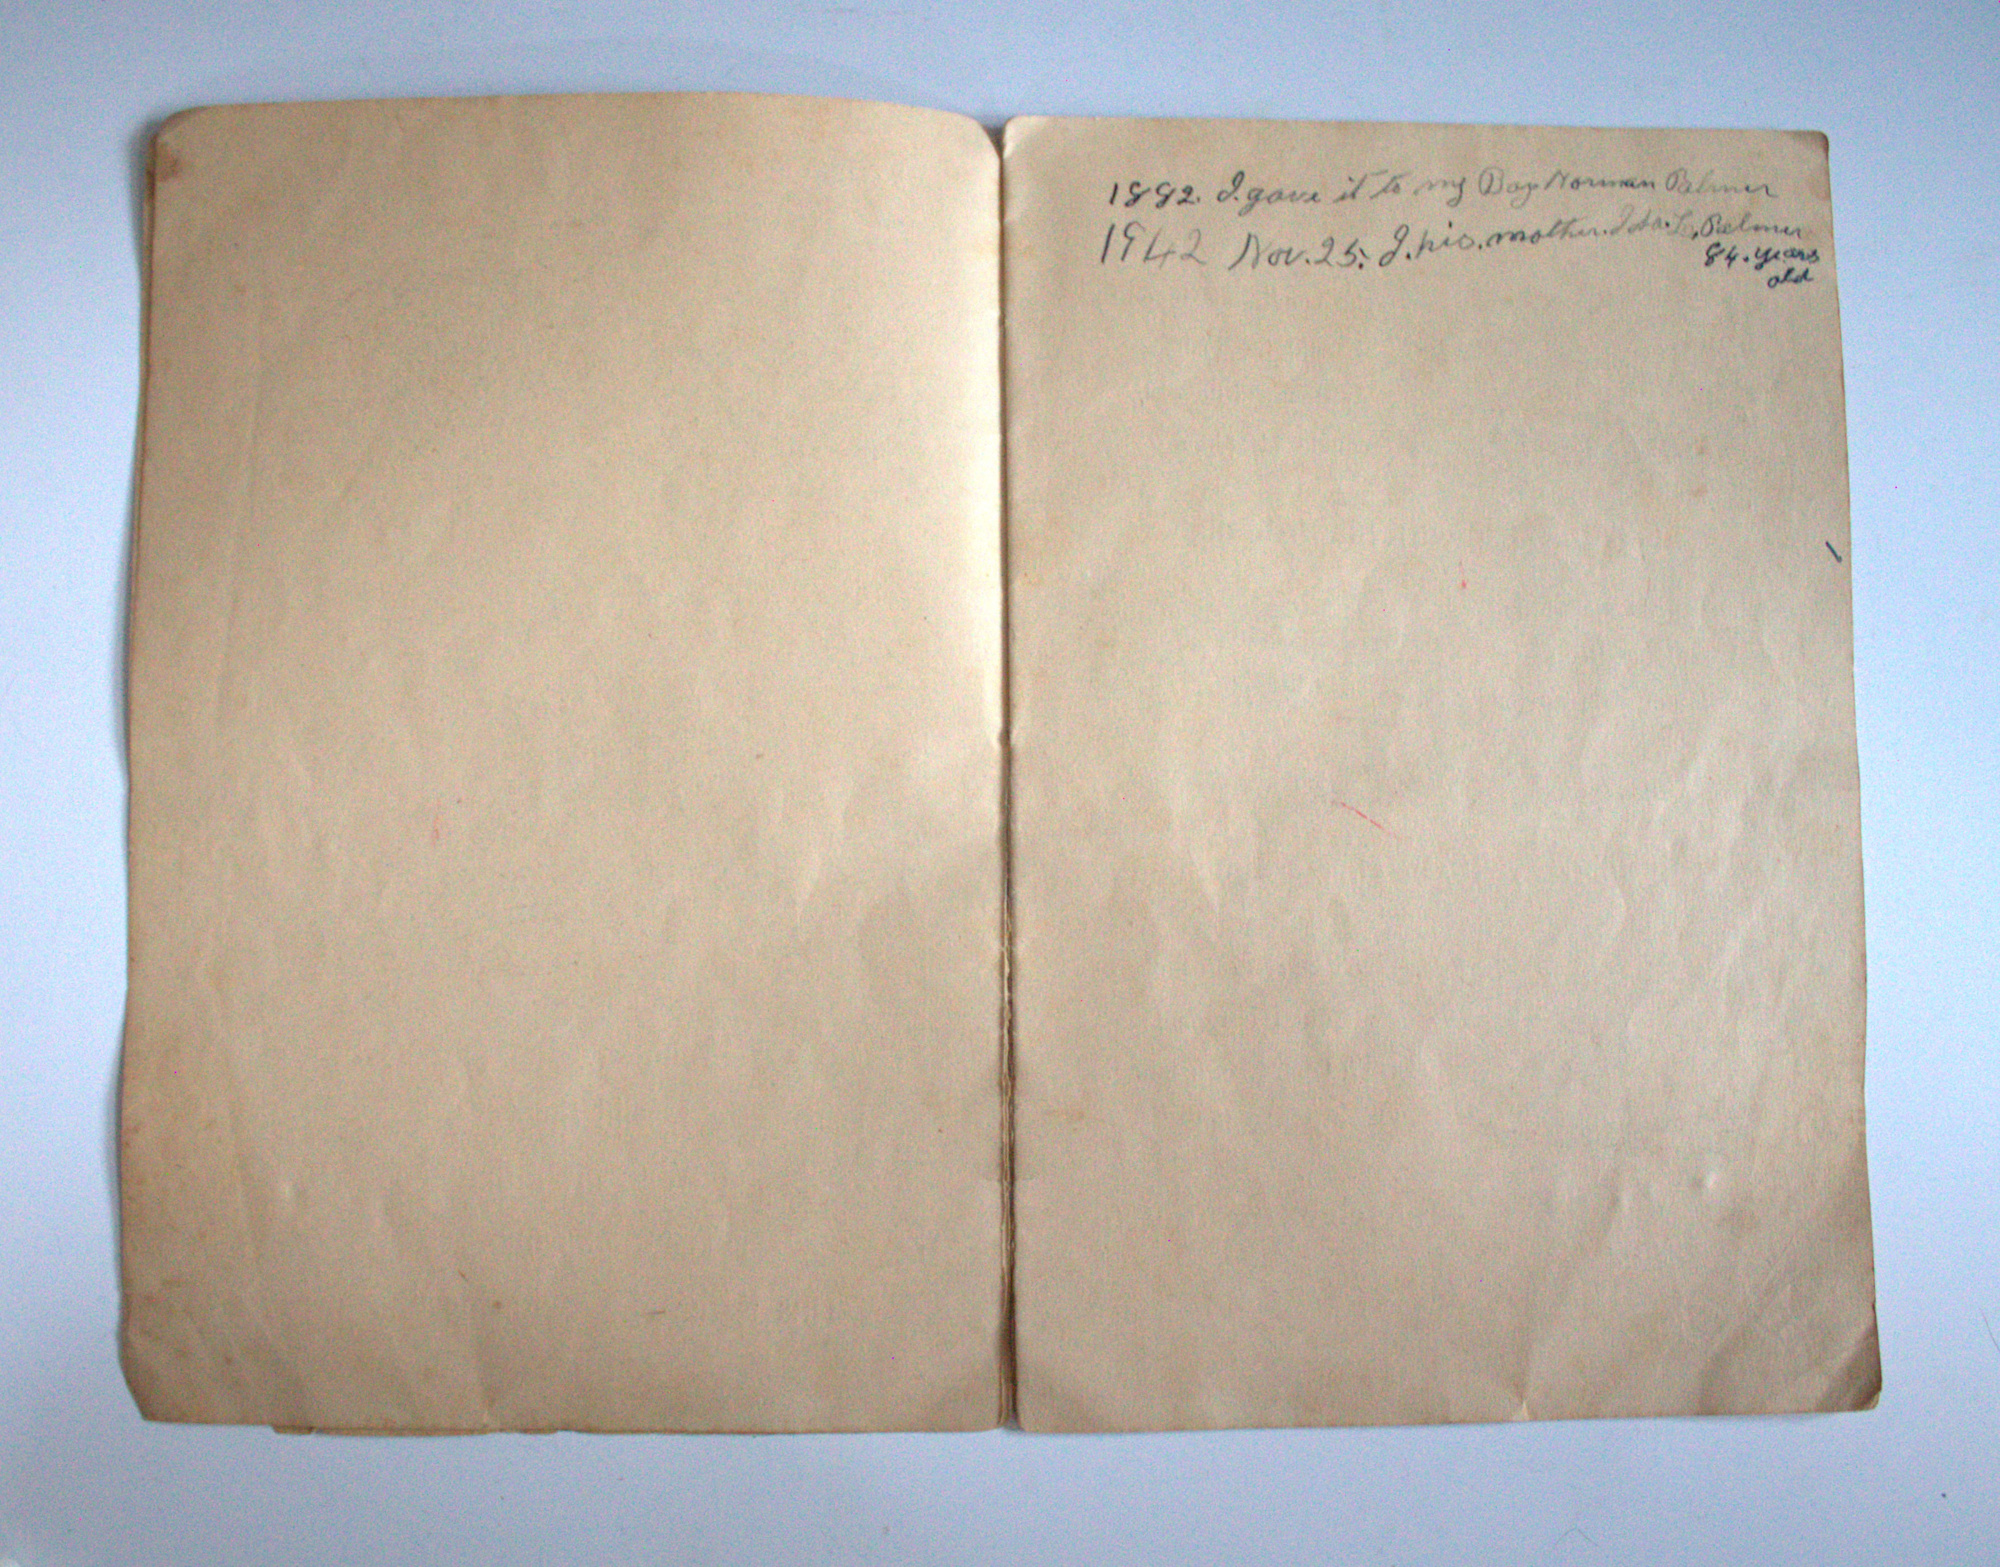 1882. I. gave it to my Boy Norman Palmer
1942 Nov. 25. I. his. mother. Ida. L. Palmer
84. years
old